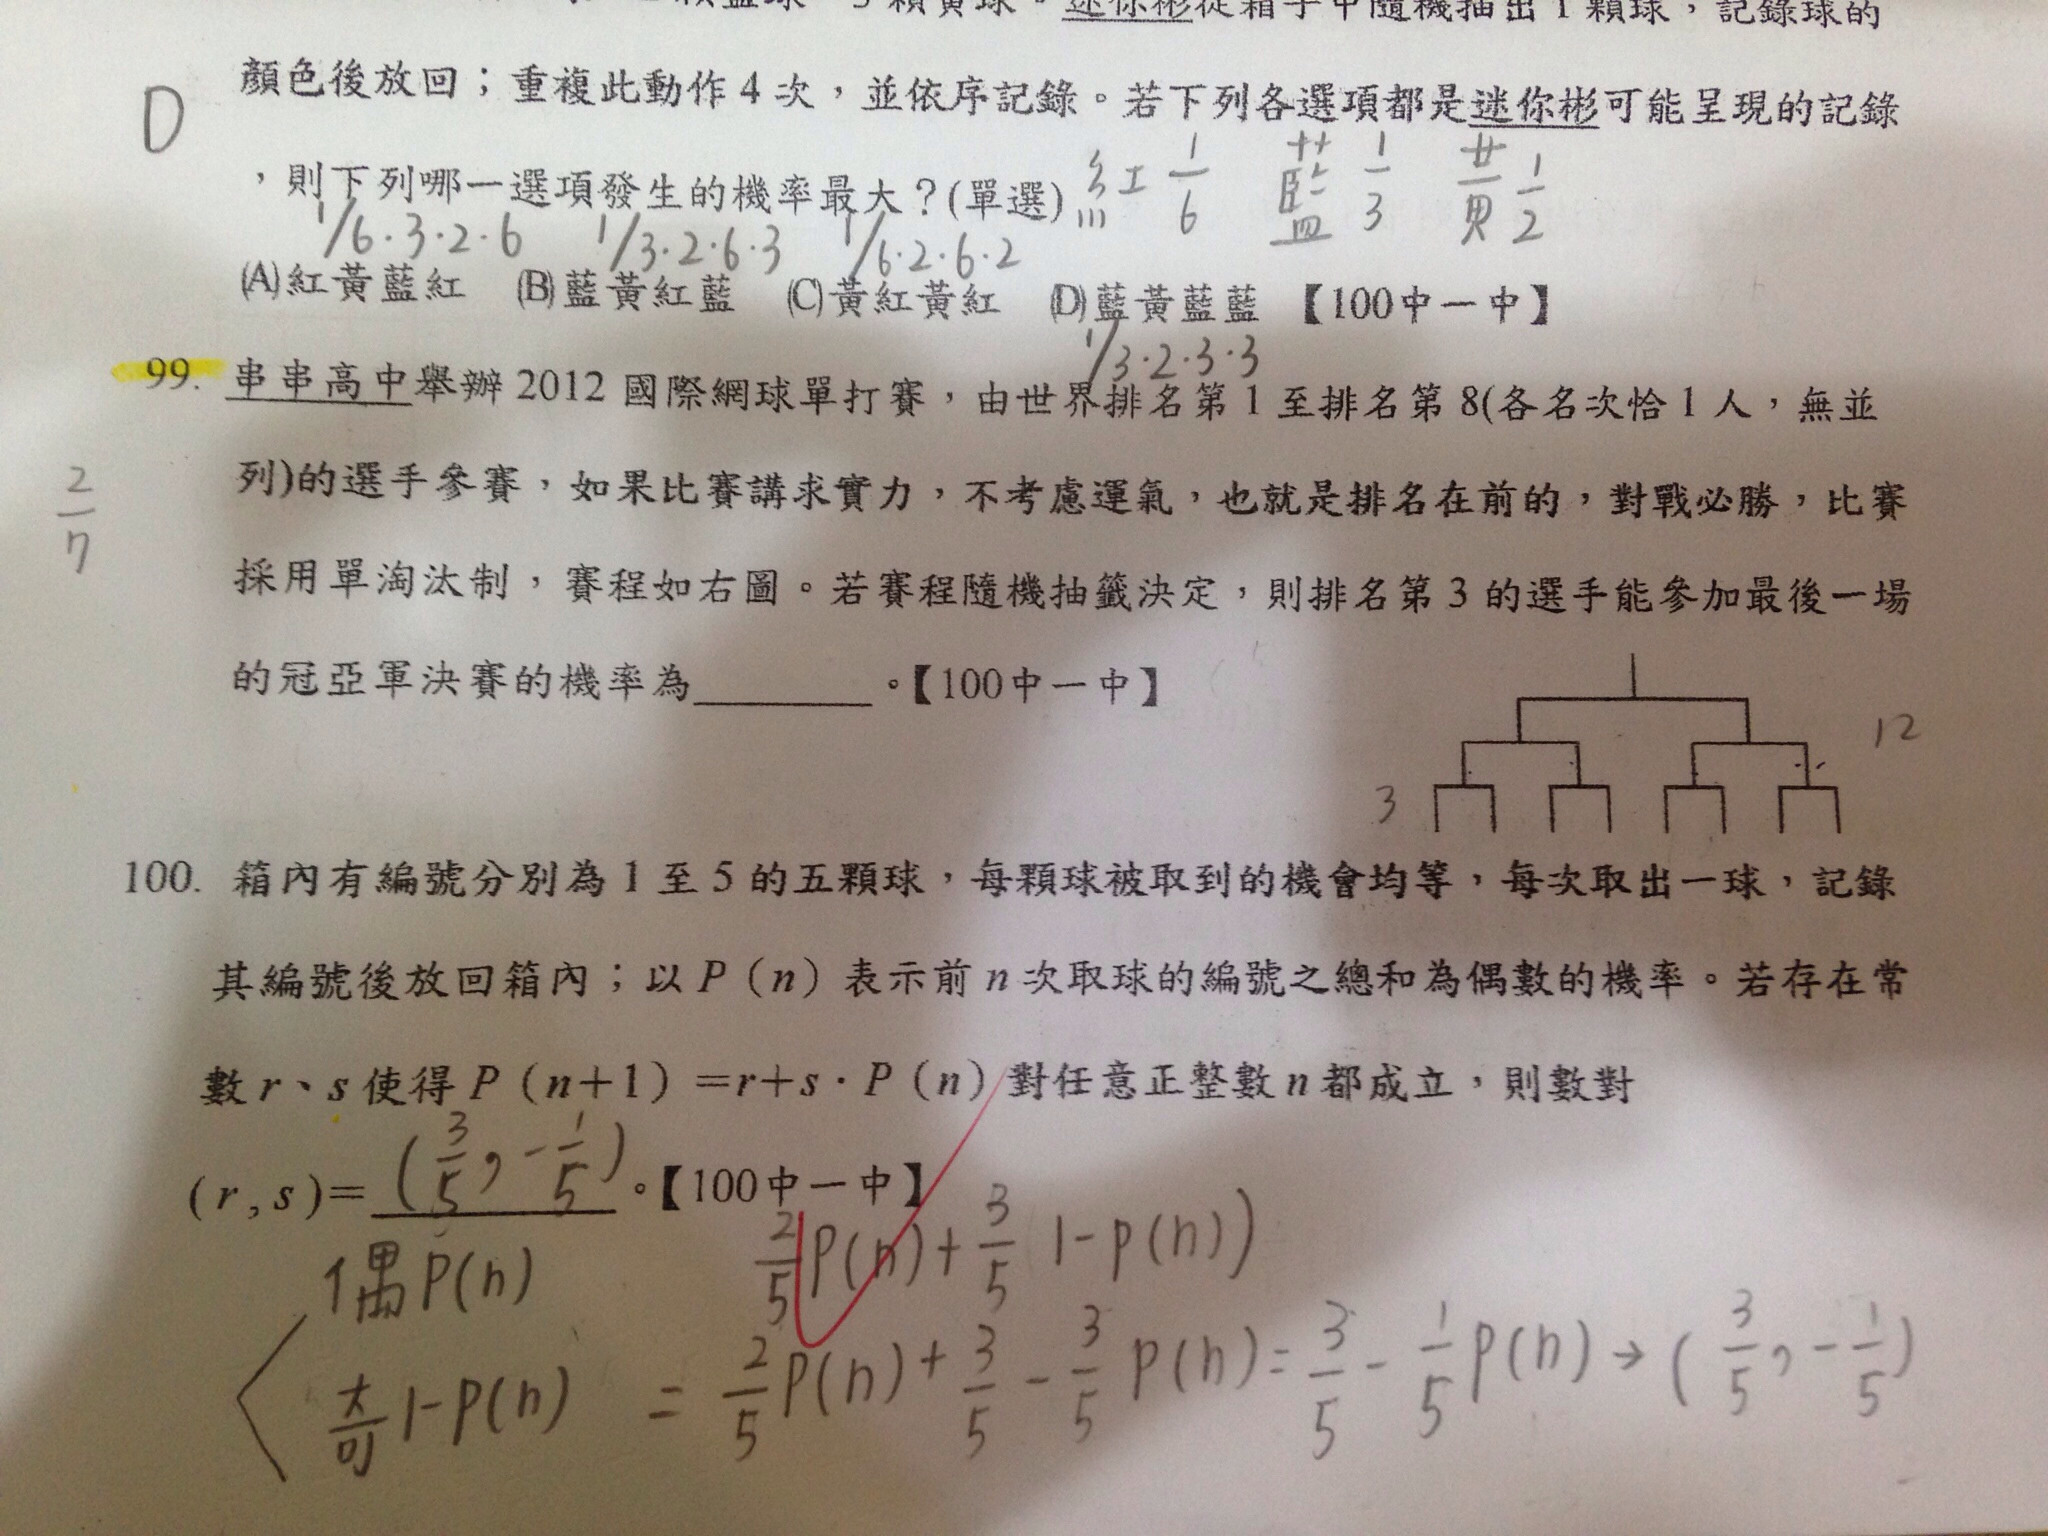 顆藍球、3顆黃球。迷你彬從箱子中隨機抽出1顆球，記錄球的
D
顏色後放回；重複此動作4次，並依序記錄。若下列各選項都是迷你彬可能呈現的記錄
，則下列哪一選項發生的機率最大？(單選) 紅 1/6 藍 1/3 黃 1/2
1/6·3·2·6 1/3·2·6·3 1/6·2·6·2
(A)紅黃藍紅 (B)藍黃紅藍 (C)黃紅黃紅 (D)藍黃藍藍 【100中一中】
1/3·2·3·3
99. 串串高中舉辦2012國際網球單打賽，由世界排名第1至排名第8(各名次恰1人，無並
列)的選手參賽，如果比賽講求實力，不考慮運氣，也就是排名在前的，對戰必勝，比賽
2/7
採用單淘汰制，賽程如右圖。若賽程隨機抽籤決定，則排名第3的選手能參加最後一場
的冠亞軍決賽的機率為________。【100中一中】
12
3
100. 箱內有編號分別為1至5的五顆球，每顆球被取到的機會均等，每次取出一球，記錄
其編號後放回箱內；以P（n）表示前n次取球的編號之總和為偶數的機率。若存在常
數r、s使得P（n+1）=r+s·P（n）對任意正整數n都成立，則數對
(r,s)= (3/5, -1/5) 。【100中一中】
偶 P(n) 2/5 P(n) + 3/5 (1-P(n))
奇 1-P(n) = 2/5 P(n) + 3/5 - 3/5 P(n) = 3/5 - 1/5 P(n) → (3/5, -1/5)